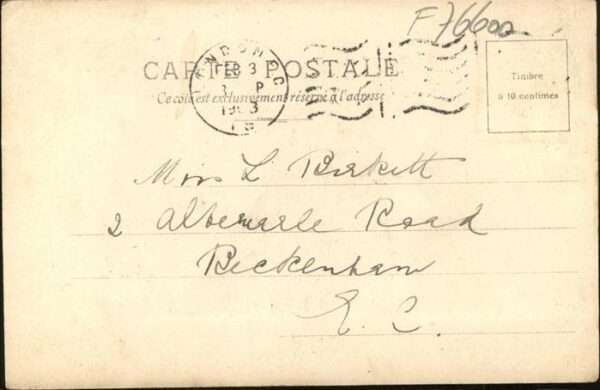 F76600
CARTE POSTALE
Ce côté est exclusivement réservé à l'adresse
Timbre
à 10 centimes
FEB 3
P
Miss L Birkett
2 Albemarle Road
Beckenham
E. C.